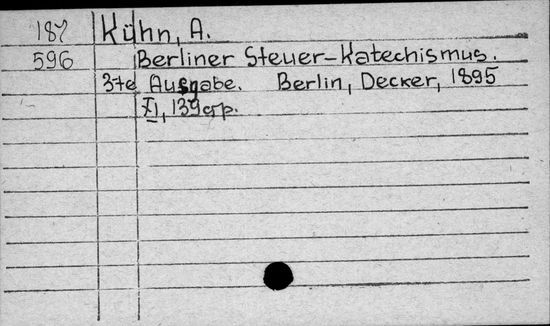 187 Kühn, A.
596 Berliner Steuer-Katechismus.
3te Ausgabe. Berlin, Decker, 1895
XI, 139 pp.